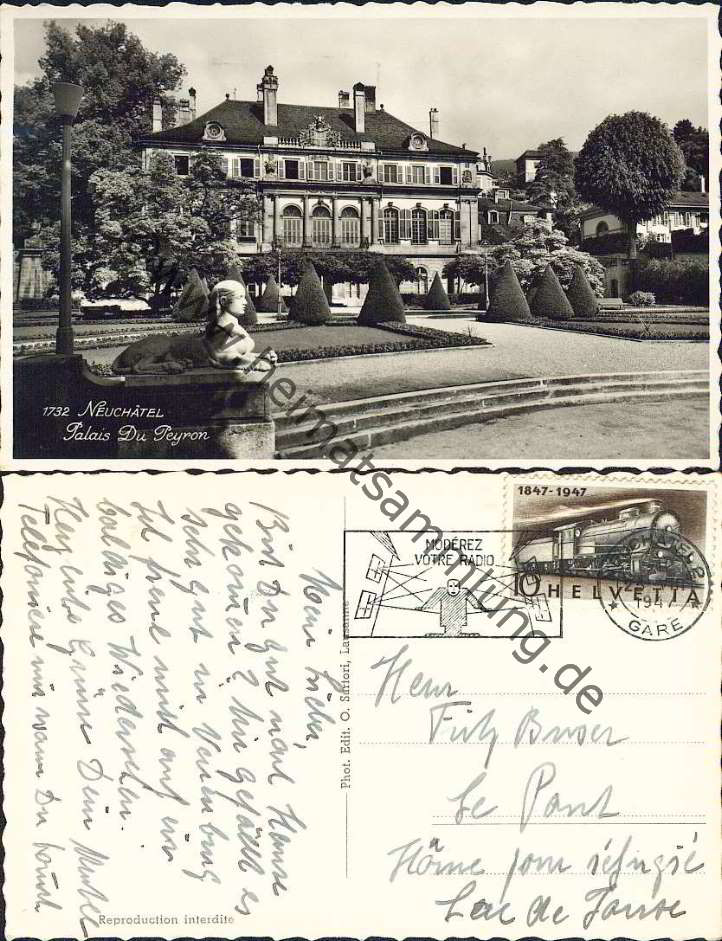 1732 NEUCHÂTEL
Palais Du Peyron
heimatsammlung.de
1847-1947
HELVETIA
10
MODÉREZ
VOTRE RADIO
NEUCHÂTEL
1947
GARE
Phot. Edit. O. Sartori, Lausanne
Reproduction interdite
Mein Lieber,
Bist Du gut nach Hause
gekommen? Mir gefällt es
sehr gut in Neuenburg
Ich freue mich auf ein
baldiges Wiedersehen.
Herz Grüsse Dein
Telefoniere mir wann Du
Herrn
Fritz Buser
Le Pont
Home pour réfugié
Lac de Joux